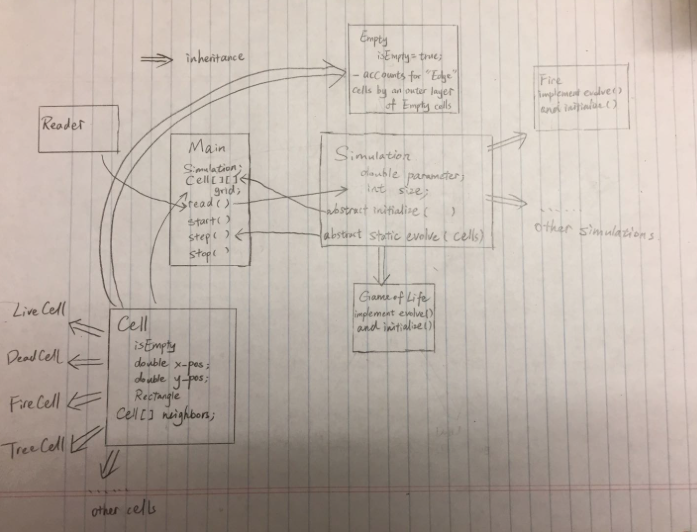 inheritance
Empty
isEmpty = true;
- accounts for "Edge"
cells by an outer layer
of Empty cells
Fire
implement evolve()
and initialize()
Reader
Main
Simulation;
Cell[][]
grid;
read()
start()
step()
stop()
Simulation
double parameter;
int size;
abstract initialize( )
abstract static evolve(cells)
......
other simulations
Game of Life
implement evolve()
and initialize()
Cell
isEmpty
double x-pos;
double y-pos;
Rectangle
Cell[] neighbors;
Live Cell
Dead Cell
Fire Cell
Tree Cell
......
other cells